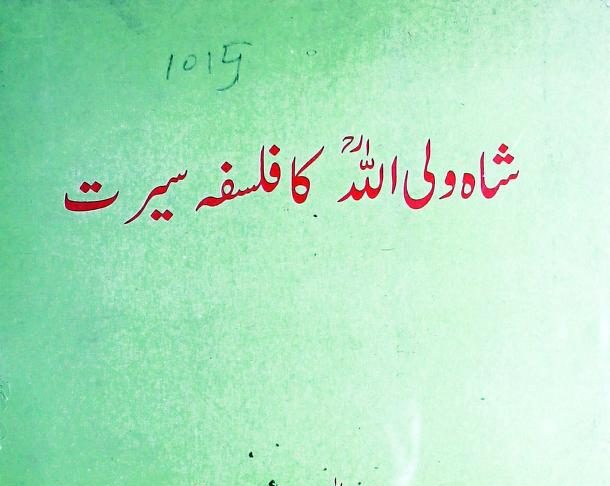 1015
شاہ ولی اللہؒ کا فلسفہ سیرت